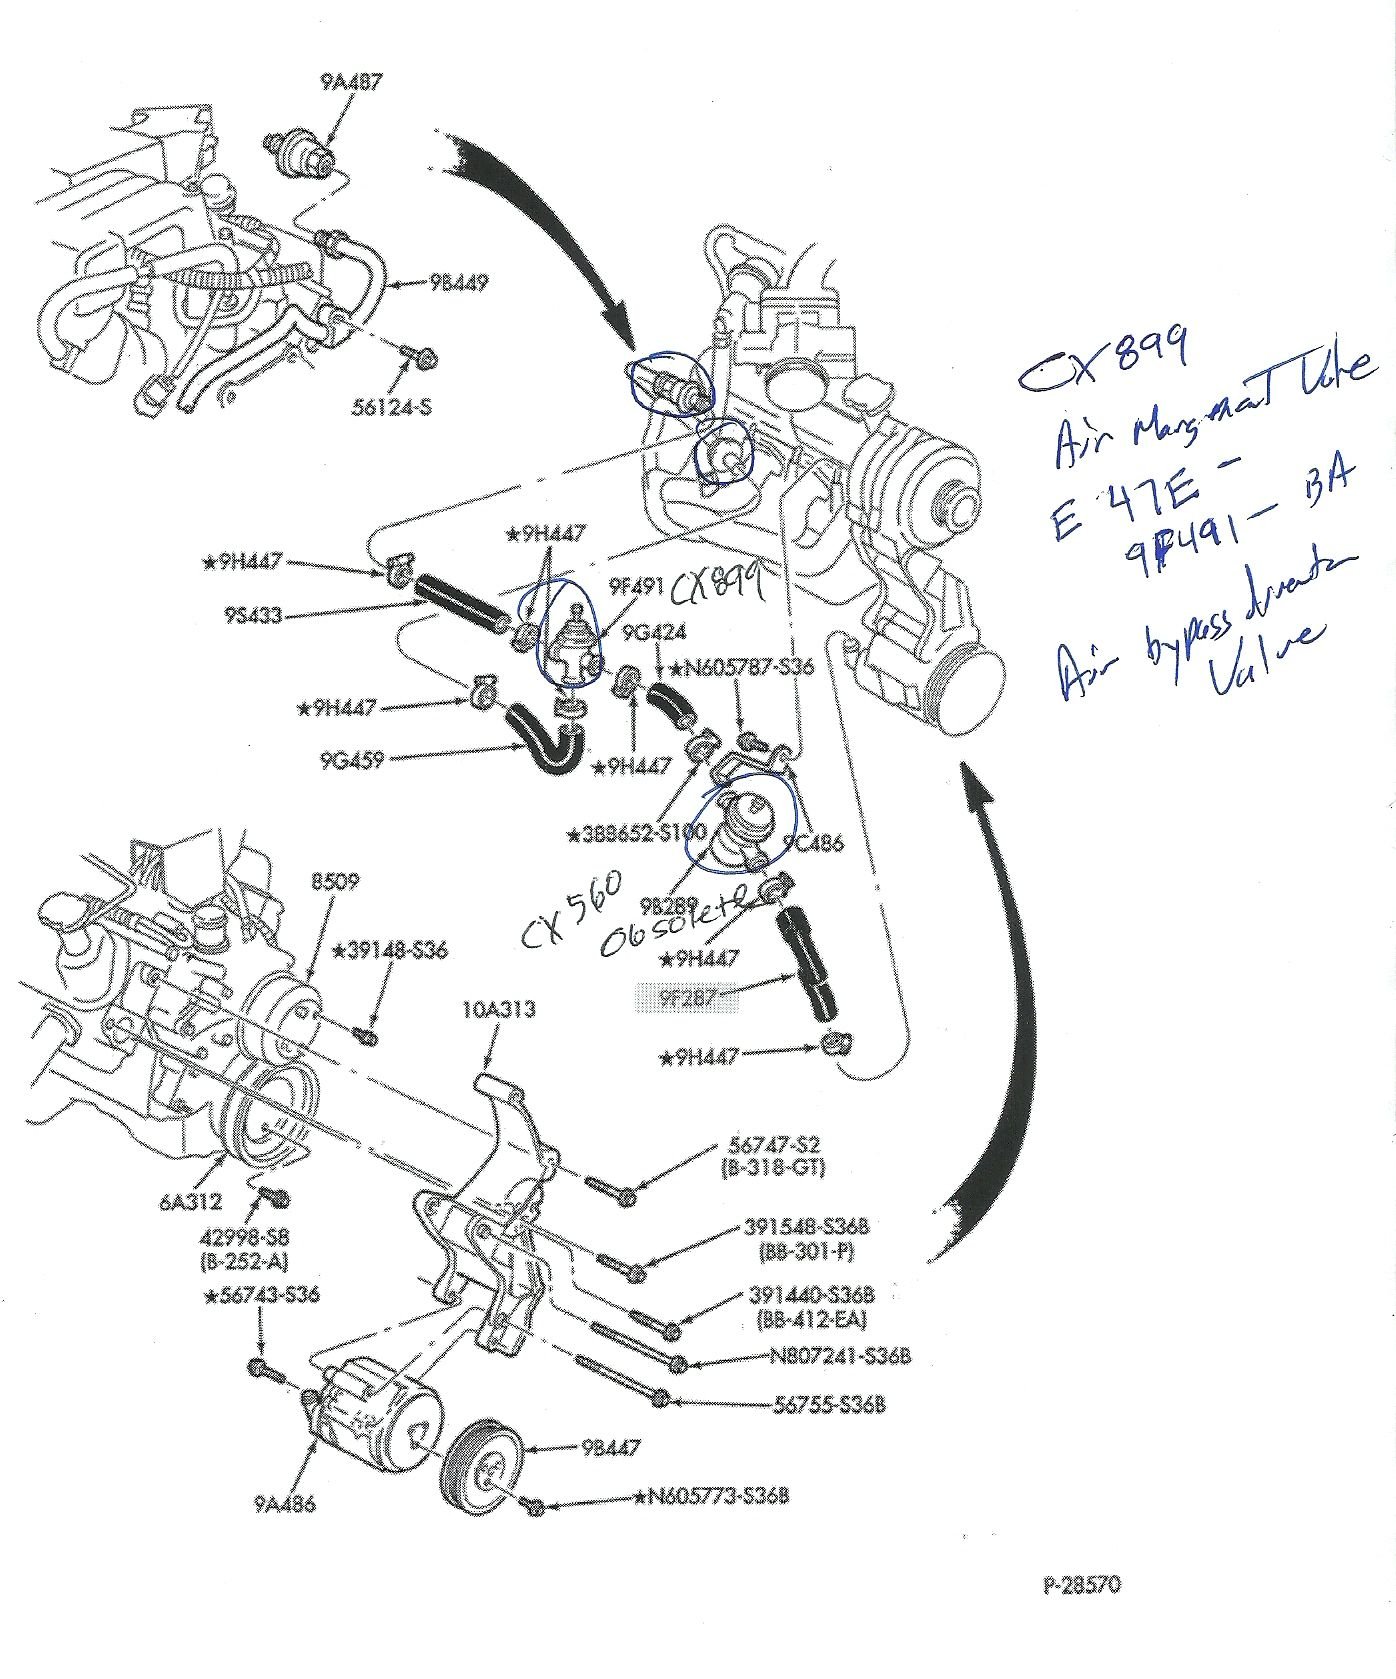 9A487
9B449
56124-S
CX899
Air Mangement Valve
E 47E -
9F491 - BA
Air bypass diverter
Valve
★9H447
★9H447
9S433
9F491 CX899
9G424
★N605787-S36
★9H447
9G459
★9H447
★388652-S100
9C486
8509
CX560
9B289
Obsolete
★39148-S36
★9H447
9F287
10A313
★9H447
56747-S2
(B-318-GT)
6A312
42998-S8
(B-252-A)
391548-S36B
(BB-301-P)
★56743-S36
391440-S36B
(BB-412-EA)
N807241-S36B
56755-S36B
9B447
9A486
★N605773-S36B
P-28570